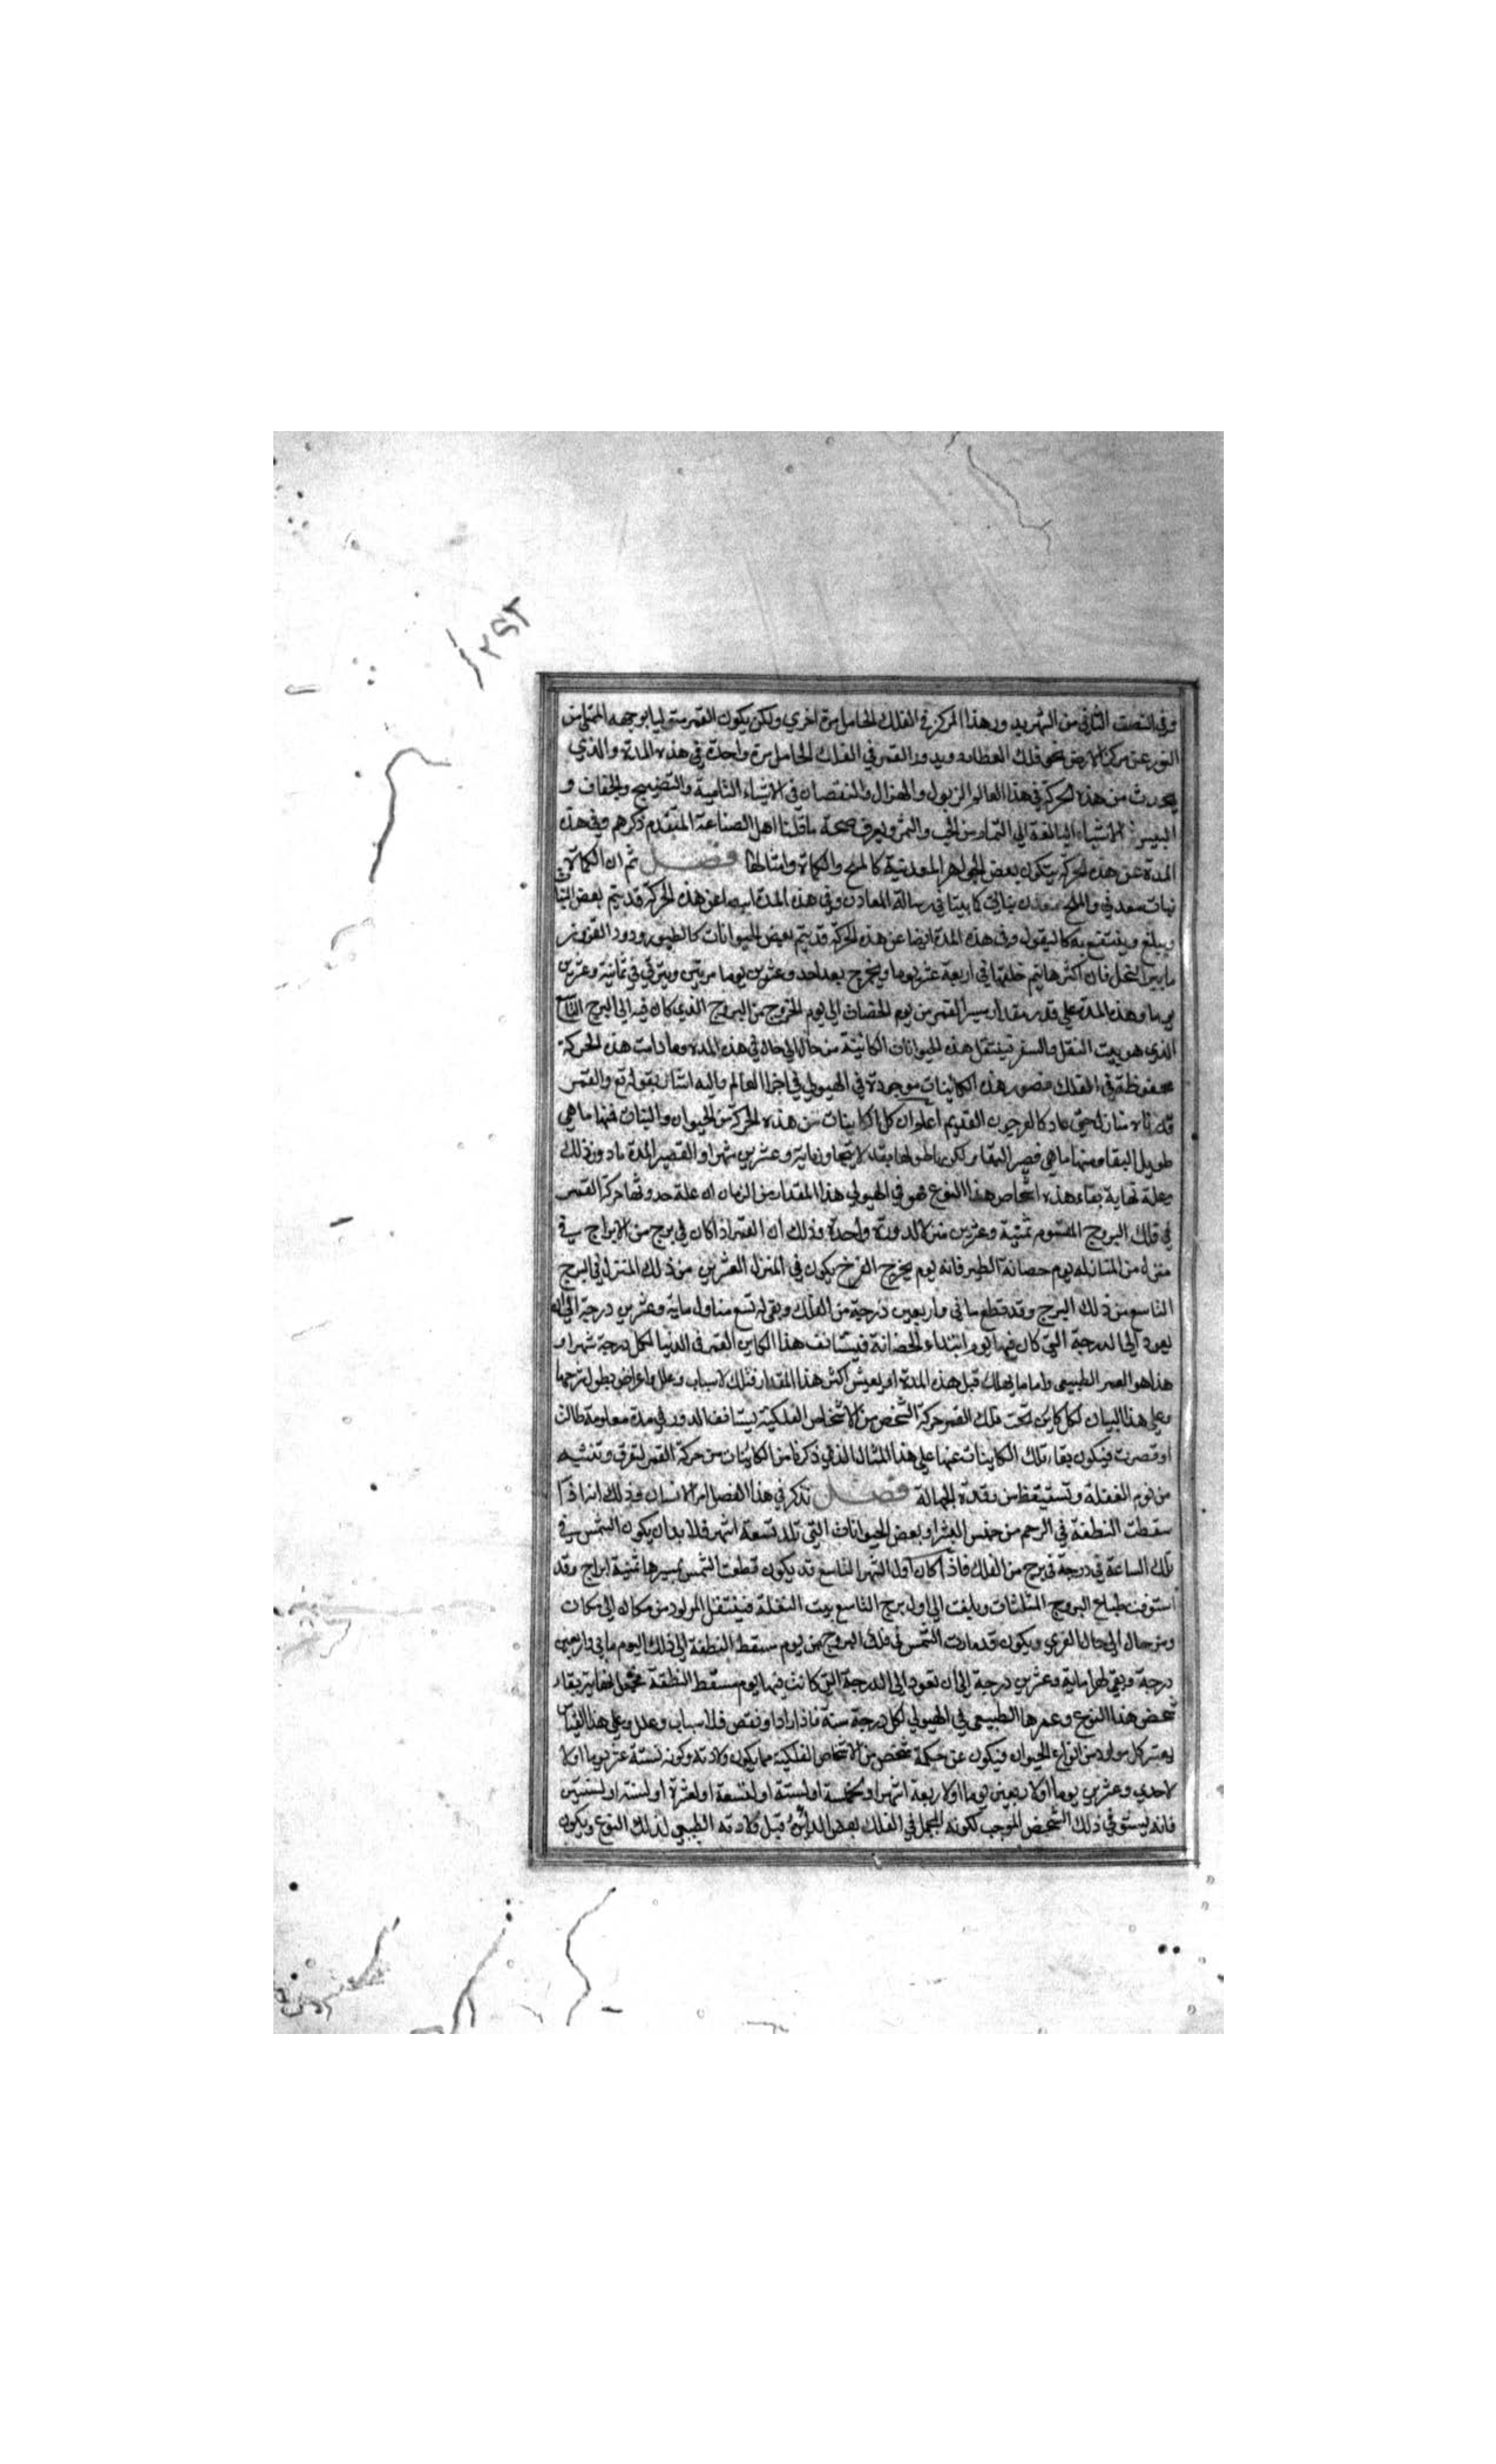 ٢٩٢
وفي النصف الثاني من الشهر يدور هذا المركز في الفلك الحامل مرة اخري ولكن يكون القمر متوليا بوجهه الممتلي من
النور عن مركز الارض نحو فلك العطارد ويدور القمر في الفلك الحامل مرة واحدة في هذه المدة والذي
يحدث من هذه الحركة في هذا العالم الزبول والهزال والنقصان في الاشياء النامية والنضيج والجفاف و
اليبس الاشياء البالغة الي التمام من الحب والثمر ويعرف صحة ما قلنا اهل الصناعة المتقدم ذكرهم وفي هذه
المدة عن هذه الحركة يتكون بعض الجواهر المعدنية كالملح والكماة وامثالها فصل ثم ان الكماة
نبات معدني والملح معدن نباتي كما بينا في رسالة المعادن وفي هذه المدة ايضا عن هذه الحركة قد يتم بعض النبات
ويبلغ وينتفع به كالبقول وفي هذه المدة ايضا عن هذه الحركة قد يتم بعض الحيوانات كالطيور ودود القز
النحل فان اكثرها يتم خلقتها في اربعة عشر يوما ويخرج بعد احد وعشرين يوما ويتربي في ثمانية وعشرين
يوما وهذه المدة علي قدر مقدار مسير القمر من يوم الحضان الي يوم الخروج من البروج الذي كان فيه الي البرج التاسع
الذي هو بيت النقل والسفر فينتقل هذه الحيوانات الكائنة من حال الي حال في هذه المدة وما دامت هذه الحركة
محفوظة في الفلك فصور هذه الكائنات موجودة في الهيولي في اجزا العالم واليه اشار بقوله تع والقمر
قدرناه منازل حتي عاد كالعرجون القديم اعلم ان كل الكاينات من هذه الحركة من الحيوان والنبات فمنها ما هي
طويل البقا ومنها ما هي قصير البقا ولكن ما طولها بقا لا يتجاوز ماية وعشرين شهرا والقصير المدة ما دون ذلك
وعلة نهاية بقاء هذه اشخاص هذا النوع هو في الهيولي هذا المقدار من الزمان ان علة حدوثها حركة القمر
في فلك البروج المقسوم ثمنية وعشرين منزلا لدورة واحدة وذلك ان القمر اذا كان في برج من الابراج في
منزله من المنازله يوم حصانة الطير فانه يوم يخرج الفرخ يكون في المنزل العشرين من ذلك المنزل في البرج
التاسع من ذلك البرج وقد قطع ماتي واربعين درجة من الفلك وبقي له تسع منازل ماية وعشرين درجة الي ان
يعود الي الدرجة التي كان فيها يوم ابتداء الحضانة فيستانف هذا الكاين العمر في الدنيا لكل درجة شهرا و
هذا هو العمر الطبيعي واما ما يهلك قبل هذه المدة او يعيش اكثر هذا المقدار فتلك لاسباب وعلل واعراض يطول شرحها
وعلي هذا البيان لكل كاين تحت فلك القمر حركة الشخص من الاشخاص الفلكية يستانف الدور في مدة معلومة طالت
او قصرت فيكون بقاء تلك الكاينات عنها علي هذا المثال الذي ذكرنا من الكائنات من حركة القمر لتعرف وتنتبه
من نوم الغفلة وتستيقظ من رقدة الجهالة فصل نذكر في هذا الفصل امر الانسان وذلك انه اذا
سقطت النطفة في الرحم من جنس البشر او بعض الحيوانات التي تلد تسعة اشهر فلا بد ان يكون الشمس في
تلك الساعة في درجة في برج من الفلك فاذا كان اول الشهر التاسع قد يكون قطعت الشمس بمسيرها ثمنية ابراج وقد
استوفت طباع البروج المثلثات وبلغت الي اول برج التاسع بيت النقلة فينتقل المولود من مكان الي مكان
ومن حال الي حال اخري ويكون قد مارت الشمس في فلك البروج من يوم مسقط النطفة الي ذلك اليوم ماتي واربعين
درجة وبقي لها ماية وعشرين درجة الي ان تعود الي الدرجة التي كانت فيها يوم مسقط النطفة نهاية بقاء
شخص هذا النوع وعمرها الطبيعي في الهيولي لكل درجة سنة فاذا زاد او نقص فلاسباب وعلل وعلي هذا القياس
يعتبر كل مولود من انواع الحيوان فيكون عن حركة شخص من الاشخاص الفلكية مما يكون ولادته وكونه لستة عشر يوما او لا
لاحدي وعشرين يوما او لاربعين يوما او لاربعة اشهر او لخمسة او لستة او لتسعة او لعشرة او لسنة او لسنتين
فانه يستوفي ذلك الشخص الموجب لكونه في الفلك بعض قبل ولادته الطبيعي لذلك النوع ويكون